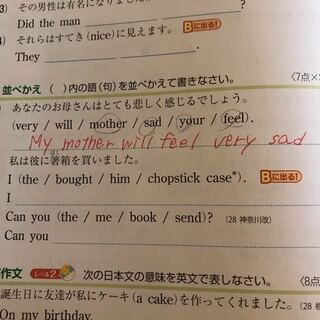 3) その男性は有名になりました
Did the man ?
4) それらはすてき(nice)に見えます。 Bに出る!
They .
並べかえ ( )内の語(句)を並べかえて書きなさい。 〈7点×
あなたのお母さんはとても悲しく感じるでしょう。
(very / will / mother / sad / your / feel).
My mother will feel very sad
私は彼に箸箱を買いました。
I (the / bought / him / chopstick case*). Bに出る!
I
Can you (the / me / book / send)? (28 神奈川改)
Can you
作文 レベル2 次の日本文の意味を英文で表しなさい。 〈8点
誕生日に友達が私にケーキ(a cake)を作ってくれました。 (28
On my birthday,